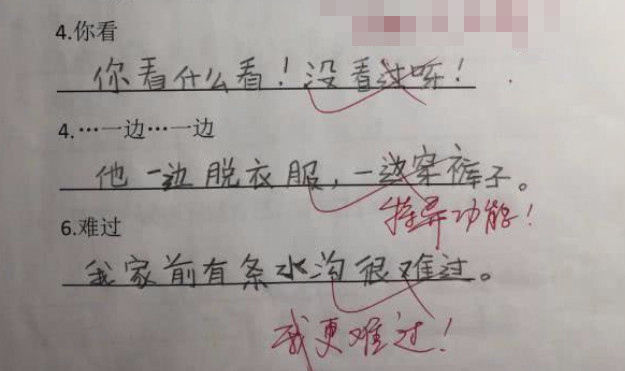 4.你看
你看什么看！没看过呀！
4.…一边…一边
他一边脱衣服，一边穿裤子。
特异功能！
6.难过
我家前有条水沟很难过。
我更难过！